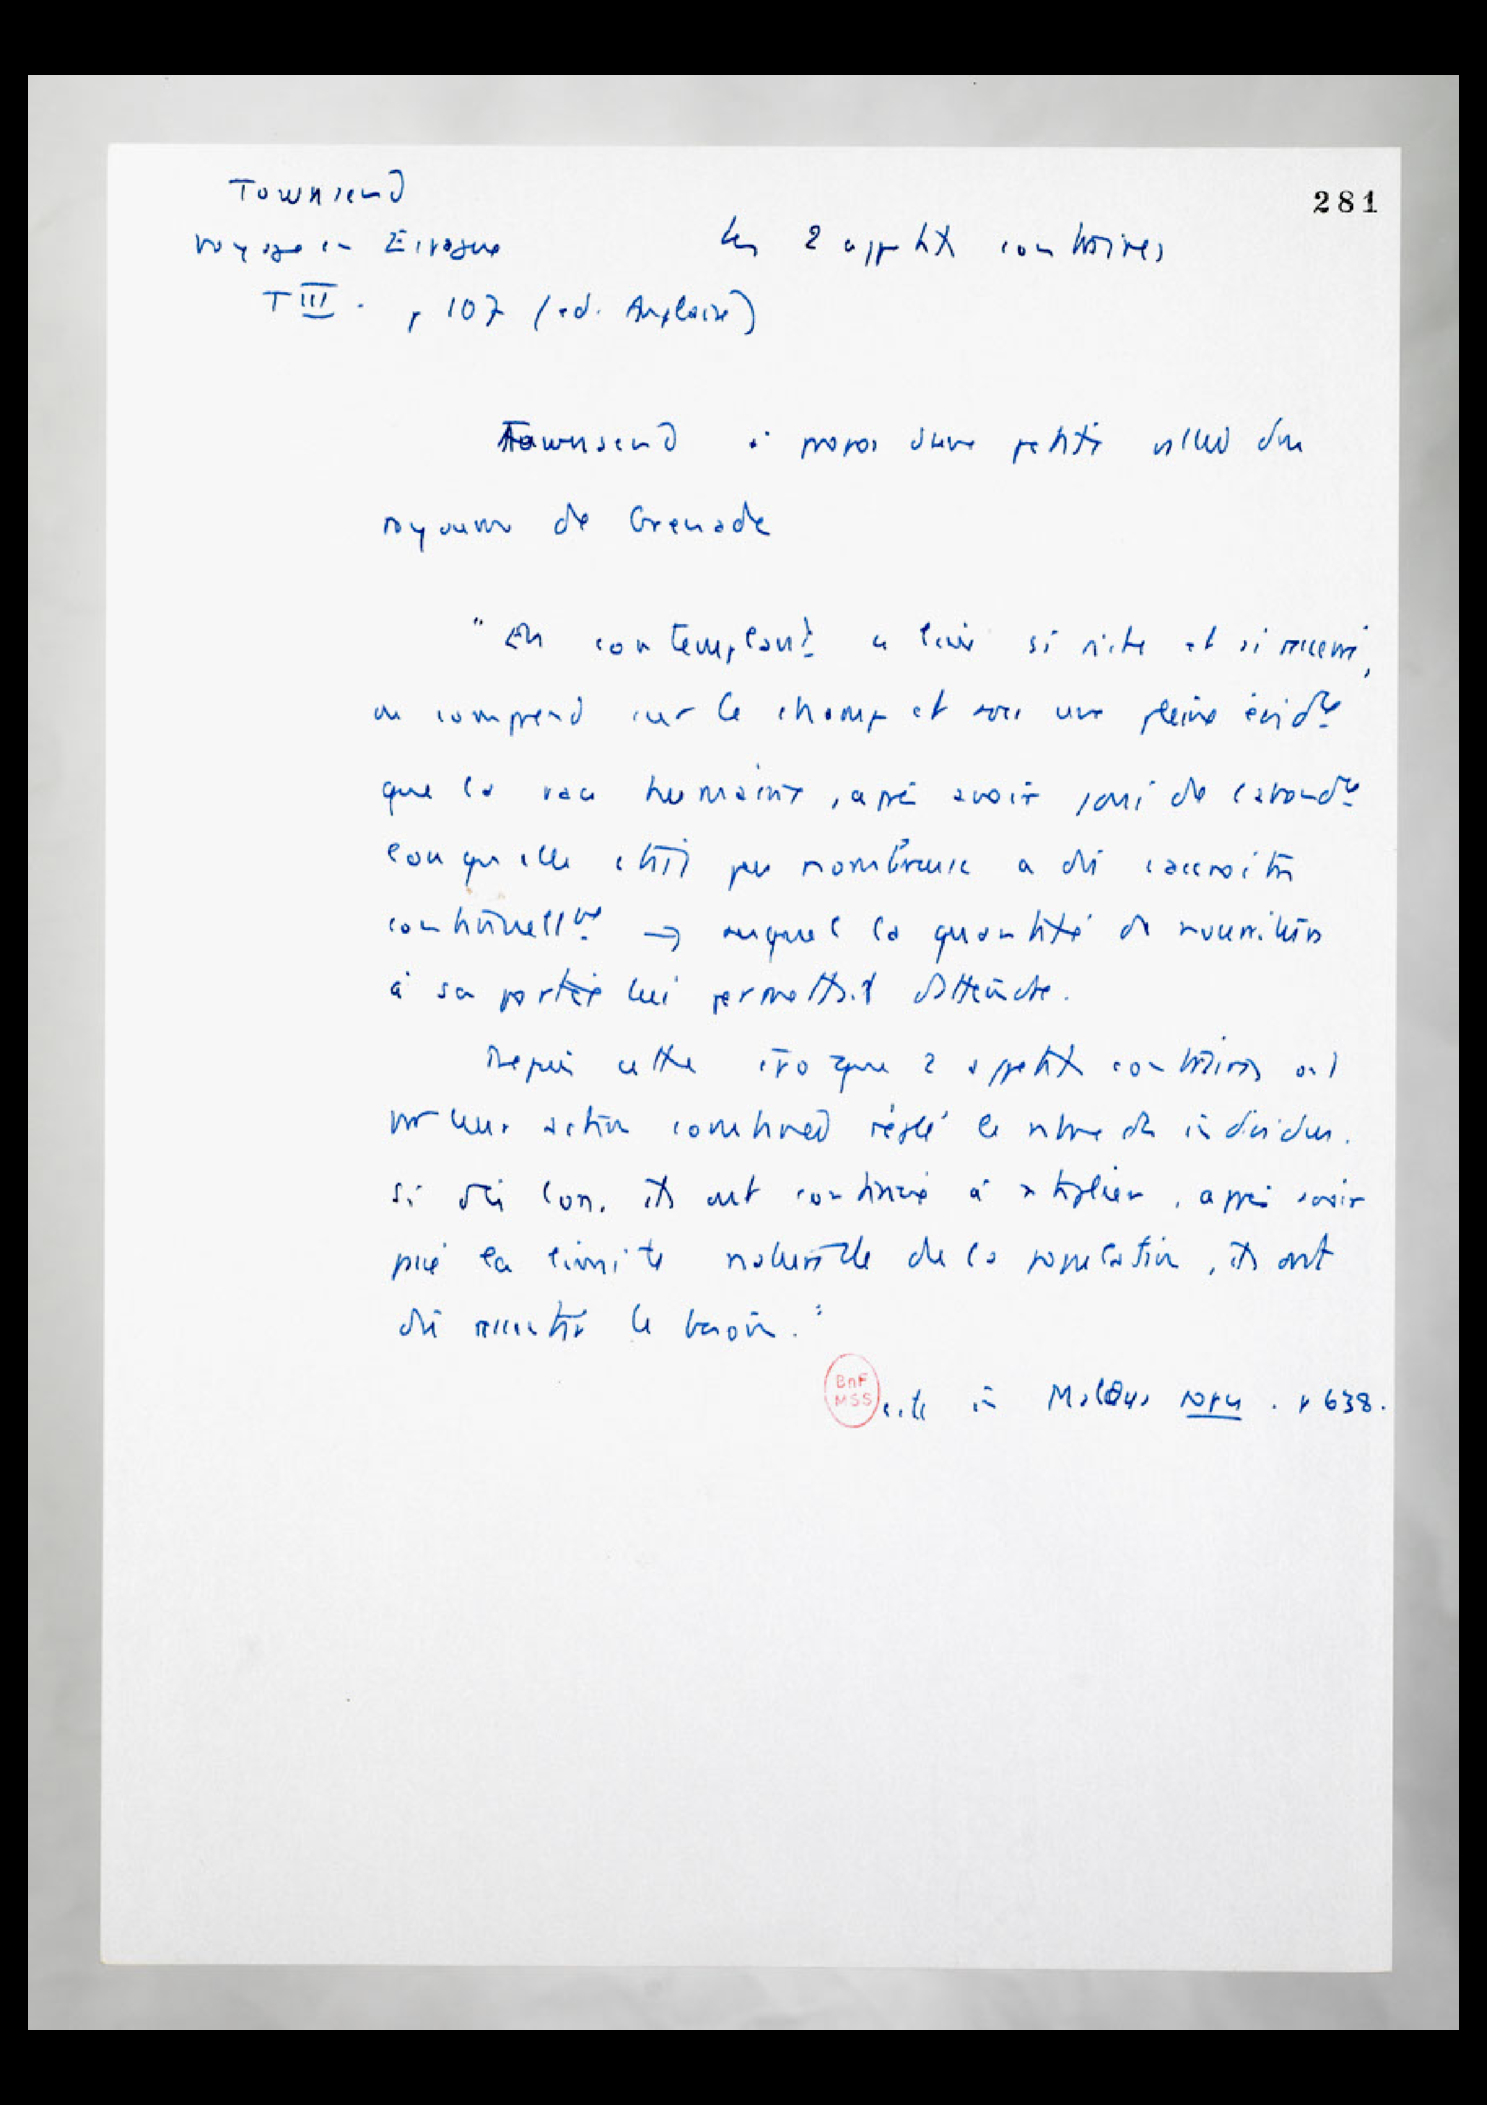 281
Townsend
Voyage en Espagne
Les 2 appétits contraires
T III. p 107 (ed. Anglaise)
Townsend à propos d'une petite ville du
royaume de Grenade
"En contemplant ce lieu si riche et si
on comprend sur le champ et avec une pleine évidce
que la race humaine, après avoir joui de l'abondce
lorsqu'elle était peu nombreuse a dû s'accroître
continuellt → auquel la quantité de nourriture
à sa portée lui permettait d'atteindre.
Depuis cette époque 2 appétits contraires ont
par leur action combinée réglé le nbre des individus.
Si dès lors, ils ont continué à xtiplier, après avoir
passé la limite naturelle de la population, ils ont
dû ressentir le besoin."
BnF
MSS
cité in Malthus p 638.